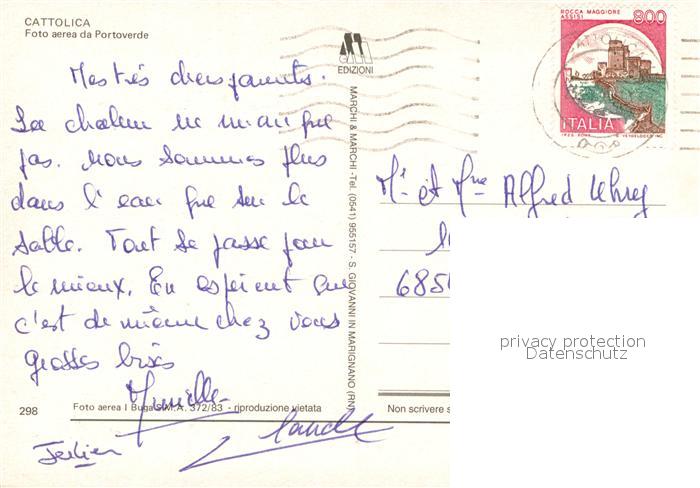 CATTOLICA
Foto aerea da Portoverde
Mes très chers parents.
La chaleur ne manque
pas. Nous sommes plus
dans l'eau que sur le
sable. Tout se passe pour
le mieux. En espérant que
c'est de même chez vous
grosses bises
Murielle
Claude
298
Foto aerea I Buga S.M.A. 372/83 - riproduzione vietata
EDIZIONI
MARCHI & MARCHI - Tel. (0541) 955157 - S. GIOVANNI IN MARIGNANO (RN)
ROCCA MAGGIORE
ASSISI
800
ITALIA
Mr et Mme Alfred
Non scrivere s
privacy protection
Datenschutz